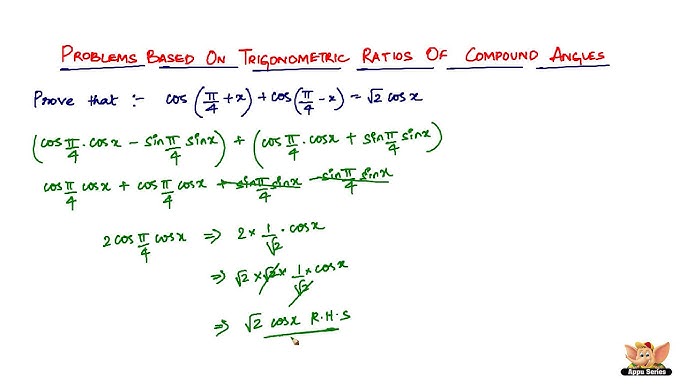 PROBLEMS BASED ON TRIGONOMETRIC RATIOS OF COMPOUND ANGLES
Prove that :- cos (π/4 + x) + cos (π/4 - x) = √2 cos x
(cos π/4 . cos x - sin π/4 sin x) + (cos π/4 . cos x + sin π/4 sin x)
cos π/4 cos x + cos π/4 cos x + sin π/4 sin x - sin π/4 sin x
2 cos π/4 cos x ⇒ 2 × 1/√2 . cos x
⇒ √2 × √2 × 1/√2 × cos x
⇒ √2 cos x R.H.S
Appu Series